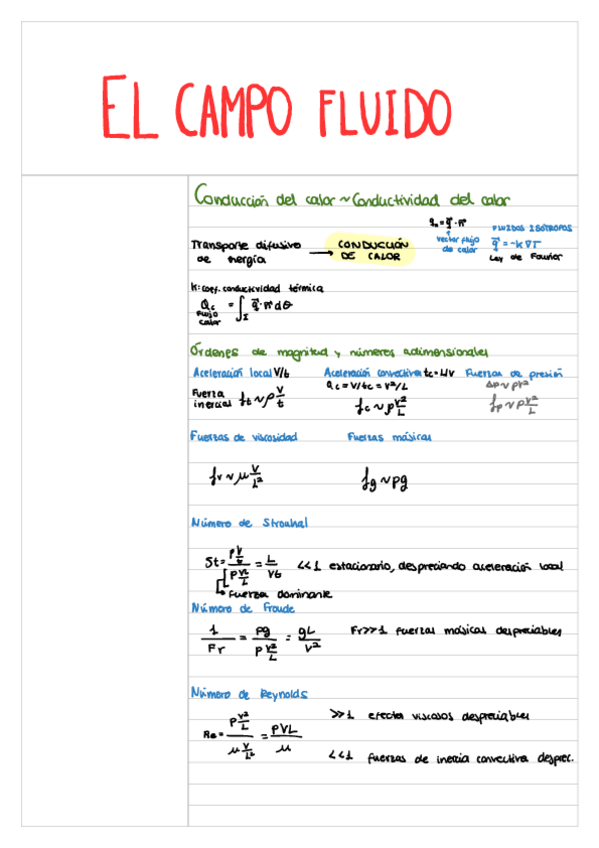 EL CAMPO FLUIDO
Conducción del calor ~ Conductividad del calor
qn = q⃗ · n⃗
vector flujo de calor
FLUIDOS ISÓTROPOS
q⃗ = -k∇T
Ley de Fourier
Transporte difusivo de energía → CONDUCCIÓN DE CALOR
k: coef. conductividad térmica
Qc = ∫Σ q⃗ · n⃗ dσ
flujo calor
Órdenes de magnitud y números adimensionales
Aceleración local V/t
Fuerza inercial ft ~ ρ V/t
Aceleración convectiva tc = L/V
ac = V/tc = V²/L
fc ~ ρ V²/L
Fuerzas de presión
Δp ~ ρV²
fp ~ ρ V²/L
Fuerzas de viscosidad
Fuerzas másicas
fv ~ μ V/L²
fg ~ ρg
Número de Strouhal
St = (ρ V/t)/(ρ V²/L) = L/Vt <<1 estacionario, despreciando aceleración local
Fuerza dominante
Número de Froude
1/Fr = ρg/(ρ V²/L) = gL/V² Fr>>1 fuerzas másicas despreciables
Número de Reynolds
Re = (ρ V²/L)/(μ V/L²) = ρVL/μ
>>1 efectos viscosos despreciables
<<1 fuerzas de inercia convectiva desprec.